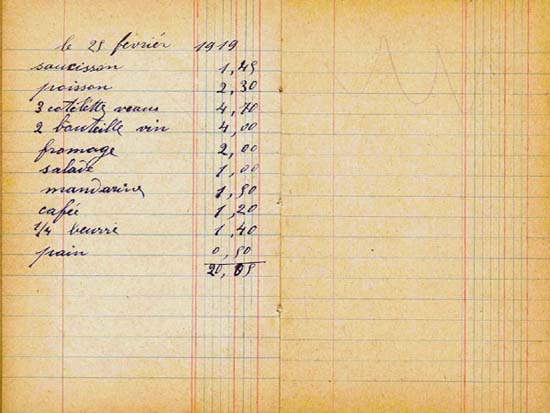 le 25 févriér 1919
saucisson 1,45
poisson 2,30
3 cotélétte veaux 4,70
2 bouteille vin 4,00
fromage 2,00
salade 1,00
mandarine 1,50
cafée 1,20
1/4 beurre 1,40
pain 0,50
20,05